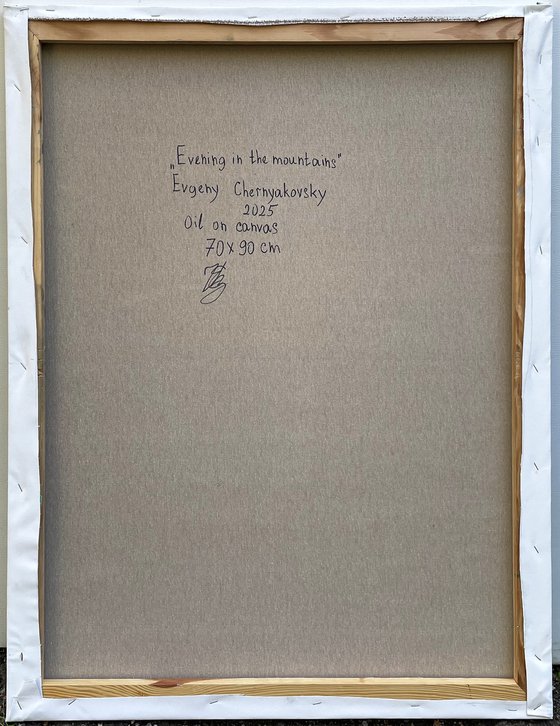 „Evening in the mountains"
Evgeny Chernyakovsky
2025
Oil on canvas
70 x 90 cm